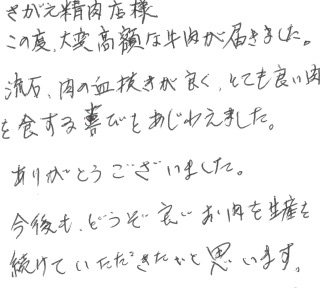 さがえ精肉店様
この度、大変高額な牛肉が届きました。
流石、肉の血抜きが良く、とても良い肉
を食する喜びをあじわえました。
ありがとうございました。
今後も、どうぞ良いお肉を生産を
続けていただきたかと思います。